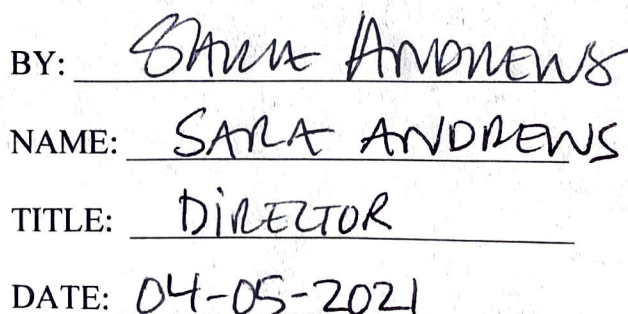 BY: SARA ANDREWS
NAME: SARA ANDREWS
TITLE: DIRECTOR
DATE: 04-05-2021